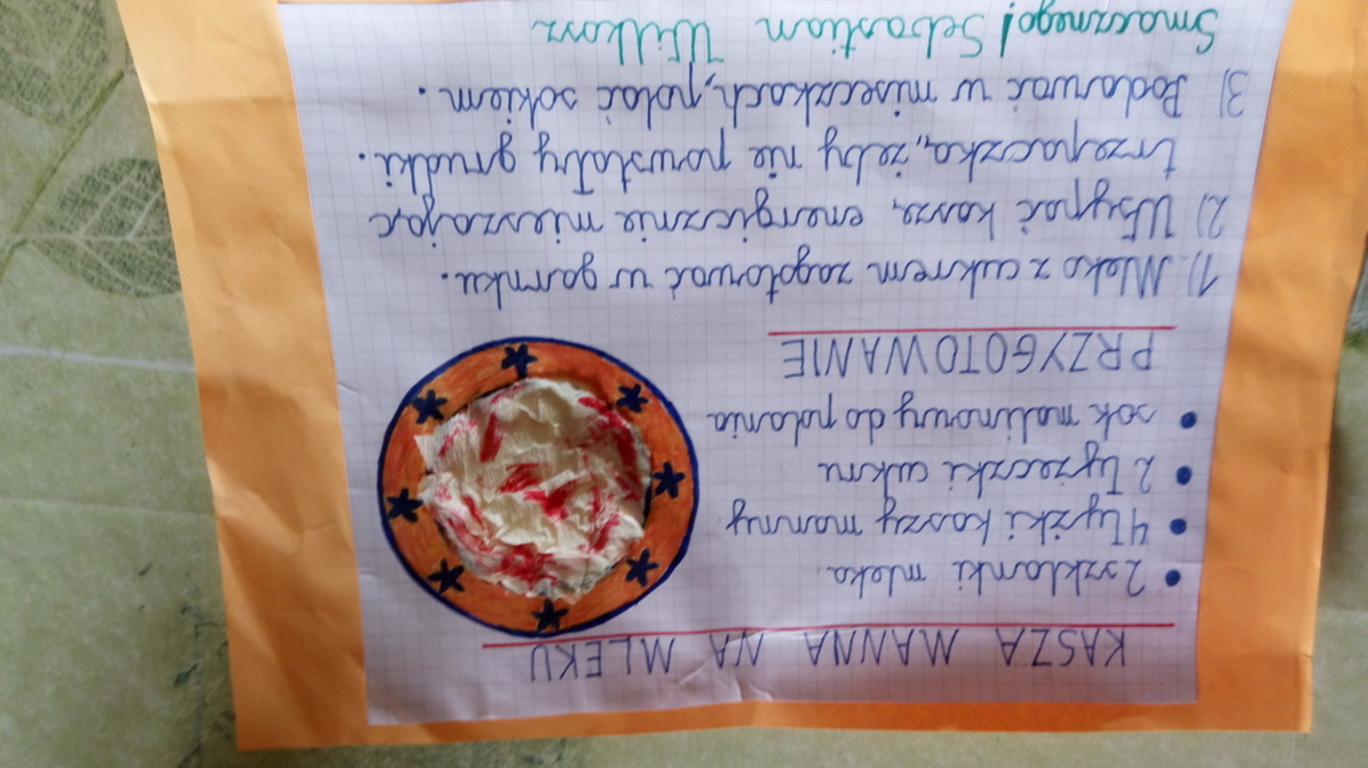 KASZA MANNA NA MLEKU
2 szklanki mleka
4 łyżki kaszy manny
2 łyżeczki cukru
sok malinowy do polania
PRZYGOTOWANIE
1) Mleko z cukrem zagotować w garnku.
2) Wsypać kaszę, energicznie mieszając
trzepaczką, żeby nie powstały grudki.
3) Podawać w miseczkach, polać sokiem.
Smacznego! Sebastian Wilkosz